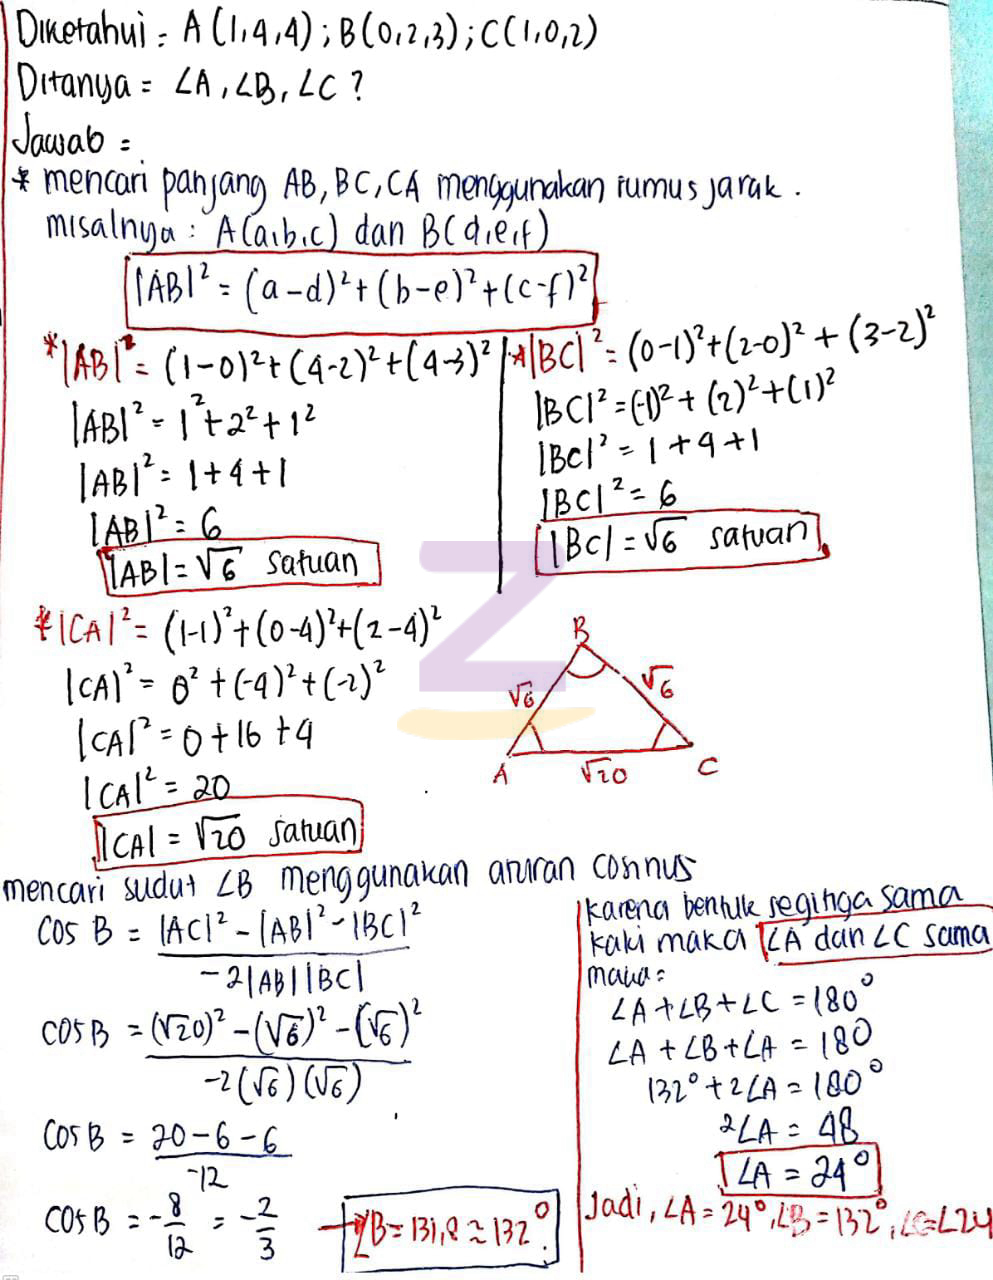 Diketahui : A(1,4,4) ; B(0,2,3) ; C(1,0,2)
Ditanya = ∠A, ∠B, ∠C ?
Jawab =
* mencari panjang AB, BC, CA menggunakan rumus jarak .
misalnya : A(a,b,c) dan B(d,e,f)
|AB|² = (a-d)² + (b-e)² + (c-f)²
*|AB|² = (1-0)² + (4-2)² + (4-3)²
|AB|² = 1² + 2² + 1²
|AB|² = 1 + 4 + 1
|AB|² = 6
|AB| = √6 satuan
*|BC|² = (0-1)² + (2-0)² + (3-2)²
|BC|² = (-1)² + (2)² + (1)²
|BC|² = 1 + 4 + 1
|BC|² = 6
|BC| = √6 satuan
*|CA|² = (1-1)² + (0-4)² + (2-4)²
|CA|² = 0² + (-4)² + (-2)²
|CA|² = 0 + 16 + 4
|CA|² = 20
|CA| = √20 satuan
B
√6 √6
A √20 C
Z
mencari sudut ∠B menggunakan aturan cosinus
cos B = |AC|² - |AB|² - |BC|²
-2|AB||BC|
cos B = (√20)² - (√6)² - (√6)²
-2(√6)(√6)
cos B = 20 - 6 - 6
-12
cos B = - 8/12 = -2/3
∠B = 131,8 ≈ 132°
karena bentuk segitiga sama
kaki maka ∠A dan ∠C sama
maka :
∠A + ∠B + ∠C = 180°
∠A + ∠B + ∠A = 180
132° + 2∠A = 180°
2∠A = 48
∠A = 24°
Jadi, ∠A = 24°, ∠B = 132°, ∠C = ∠24